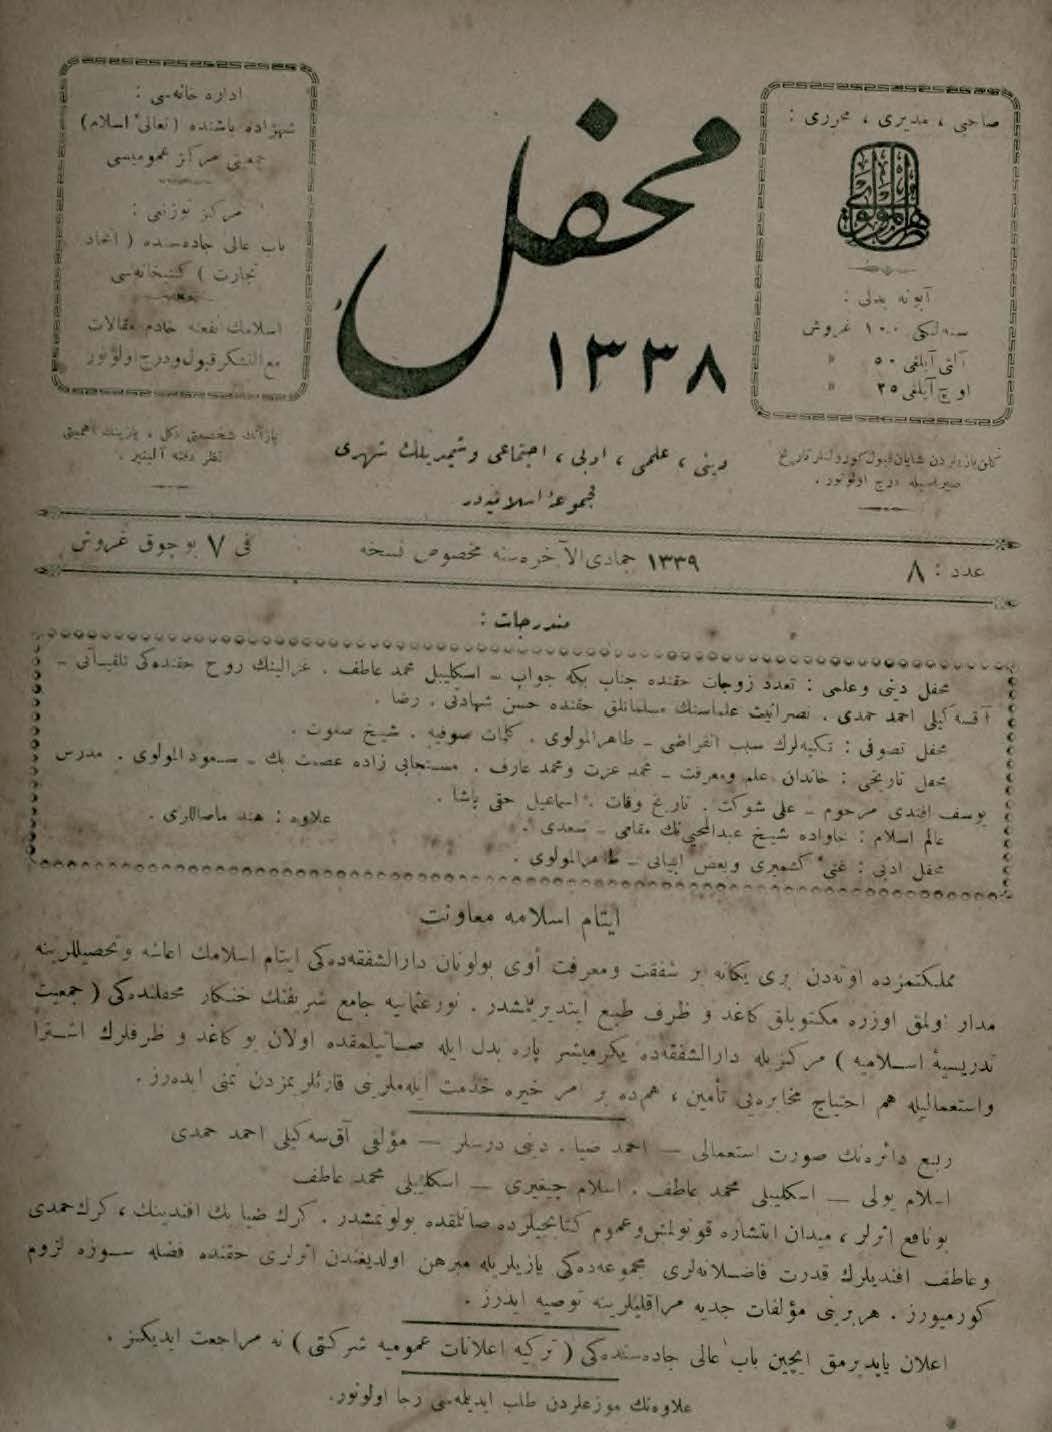 صاحبی ، مدیری ، محرری :
طاهر المولوی
آبونه بدلی :
سنه‌لکی ١٠٠ غروش
آلتی آیلغی ٥٠ »
اوچ آیلغی ٢٥ »
محفل
١٣٣٨
اداره خانه‌سی :
شهزاده باشنده (تعالیٔ اسلام)
جمعیتی مرکز عمومیسی
مرکز توزیعی :
باب عالی جاده‌سنده ( اتحاد
تجارت ) کتبخانه‌سی
اسلامك نفعنه خادم مقالات
مع التشکر قبول و درج اولونور
دینی ، علمی ، ادبی ، اجتماعی و شیمدیلك شهری
مجموعهٔ اسلامیه‌در
کلن یازیلردن شایان قبول کورولنلر تاریخ
صیره‌سیله درج اولونور .
یازانك شخصیتی دکل ، یازینك اهمیتی
نظر دقته آلینیر .
عدد : ٨
١٣٣٩ جمادی الآخره‌سنه مخصوص نسخه
فی ٧ بوچوق غروش
مندرجات :
محفل دینی وعلمی : تعدد زوجات حقنده جناب بکه جواب ــ اسکلیبلی محمد عاطف . غزالینك روح حقنده‌کی تلقیاتی ــ
آقسه‌کیلی احمد حمدی . نصرانیت علماسنك مسلمانلق حقنده حسن شهادتی . رضا .
محفل تصوفی : تکیه‌لرك سبب انقراضی ــ طاهرالمولوی . کلمات صوفیه . شیخ صفوت .
محفل تاریخی : خاندان علم ومعرفت ــ محمد عزت ومحمد عارف . مستجابی زاده عصمت بك ــ سعودالمولوی . مدرس
یوسف افندی مرحوم ــ علی شوکت . تاریخ وفات . اسماعیل حقی پاشا .
عالم اسلام : خاواده شیخ عبدالمحیی‌نك مقامی ــ سعدی . علاوه : هند ماصاللری .
محفل ادبی : غنیٔ کشمیری وبعض ابیاتی ــ طاهرالمولوی .
ایتام اسلامه معاونت
مملکتمزده اوته‌دن بری یکانه بر شفقت ومعرفت اوی بولونان دارالشفقه‌ده‌کی ایتام اسلامك اعاشه وتحصیللرینه
مدار اولمق اوزره مکتوبلق کاغد و ظرف طبع ایتدیریلمشدر . نورعثمانیه جامع شریفنك خنکار محفلنده‌کی ( جمعیت
تدریسیهٔ اسلامیه ) مرکزیله دارالشفقه‌ده یکرمیشر پاره بدل ایله صاتیلمقده اولان بو کاغد و ظرفلرك اشترا
واستعمالیله هم احتیاج مخابره‌یی تأمین ، هم‌ده بر امر خیره خدمت ایله‌ملرینی قارئلریمزدن تمنی ایده‌رز .
ربع دائره‌نك صورت استعمالی — احمد ضیا . دینی درسلر — مؤلفی آق‌سه‌کیلی احمد حمدی
اسلام یولی — اسکلیبلی محمد عاطف . اسلام چیغیری — اسکلیبلی محمد عاطف
بونافع اثرلر ، میدان انتشاره قونولمش وعموم کتابجیلرده صاتلمقده بولونمشدر . کرك ضیا بك افندینك ، کرك حمدی
وعاطف افندیلرك قدرت فاضلانه‌لری مجموعه‌ده‌کی یازیلریله مبرهن اولدیغندن اثرلری حقنده فضله سوزه لزوم
کورمیورز . هربرینی مؤلفات جدیه مراقلیلرینه توصیه ایدرز .
اعلان یاپدیرمق ایچین باب عالی جاده‌سنده‌کی ( ترکیه اعلانات عمومیه شرکتی ) نه مراجعت ایدیکز .
علاوه‌نك موزعلردن طلب ایدیلمه‌سی رجا اولونور.